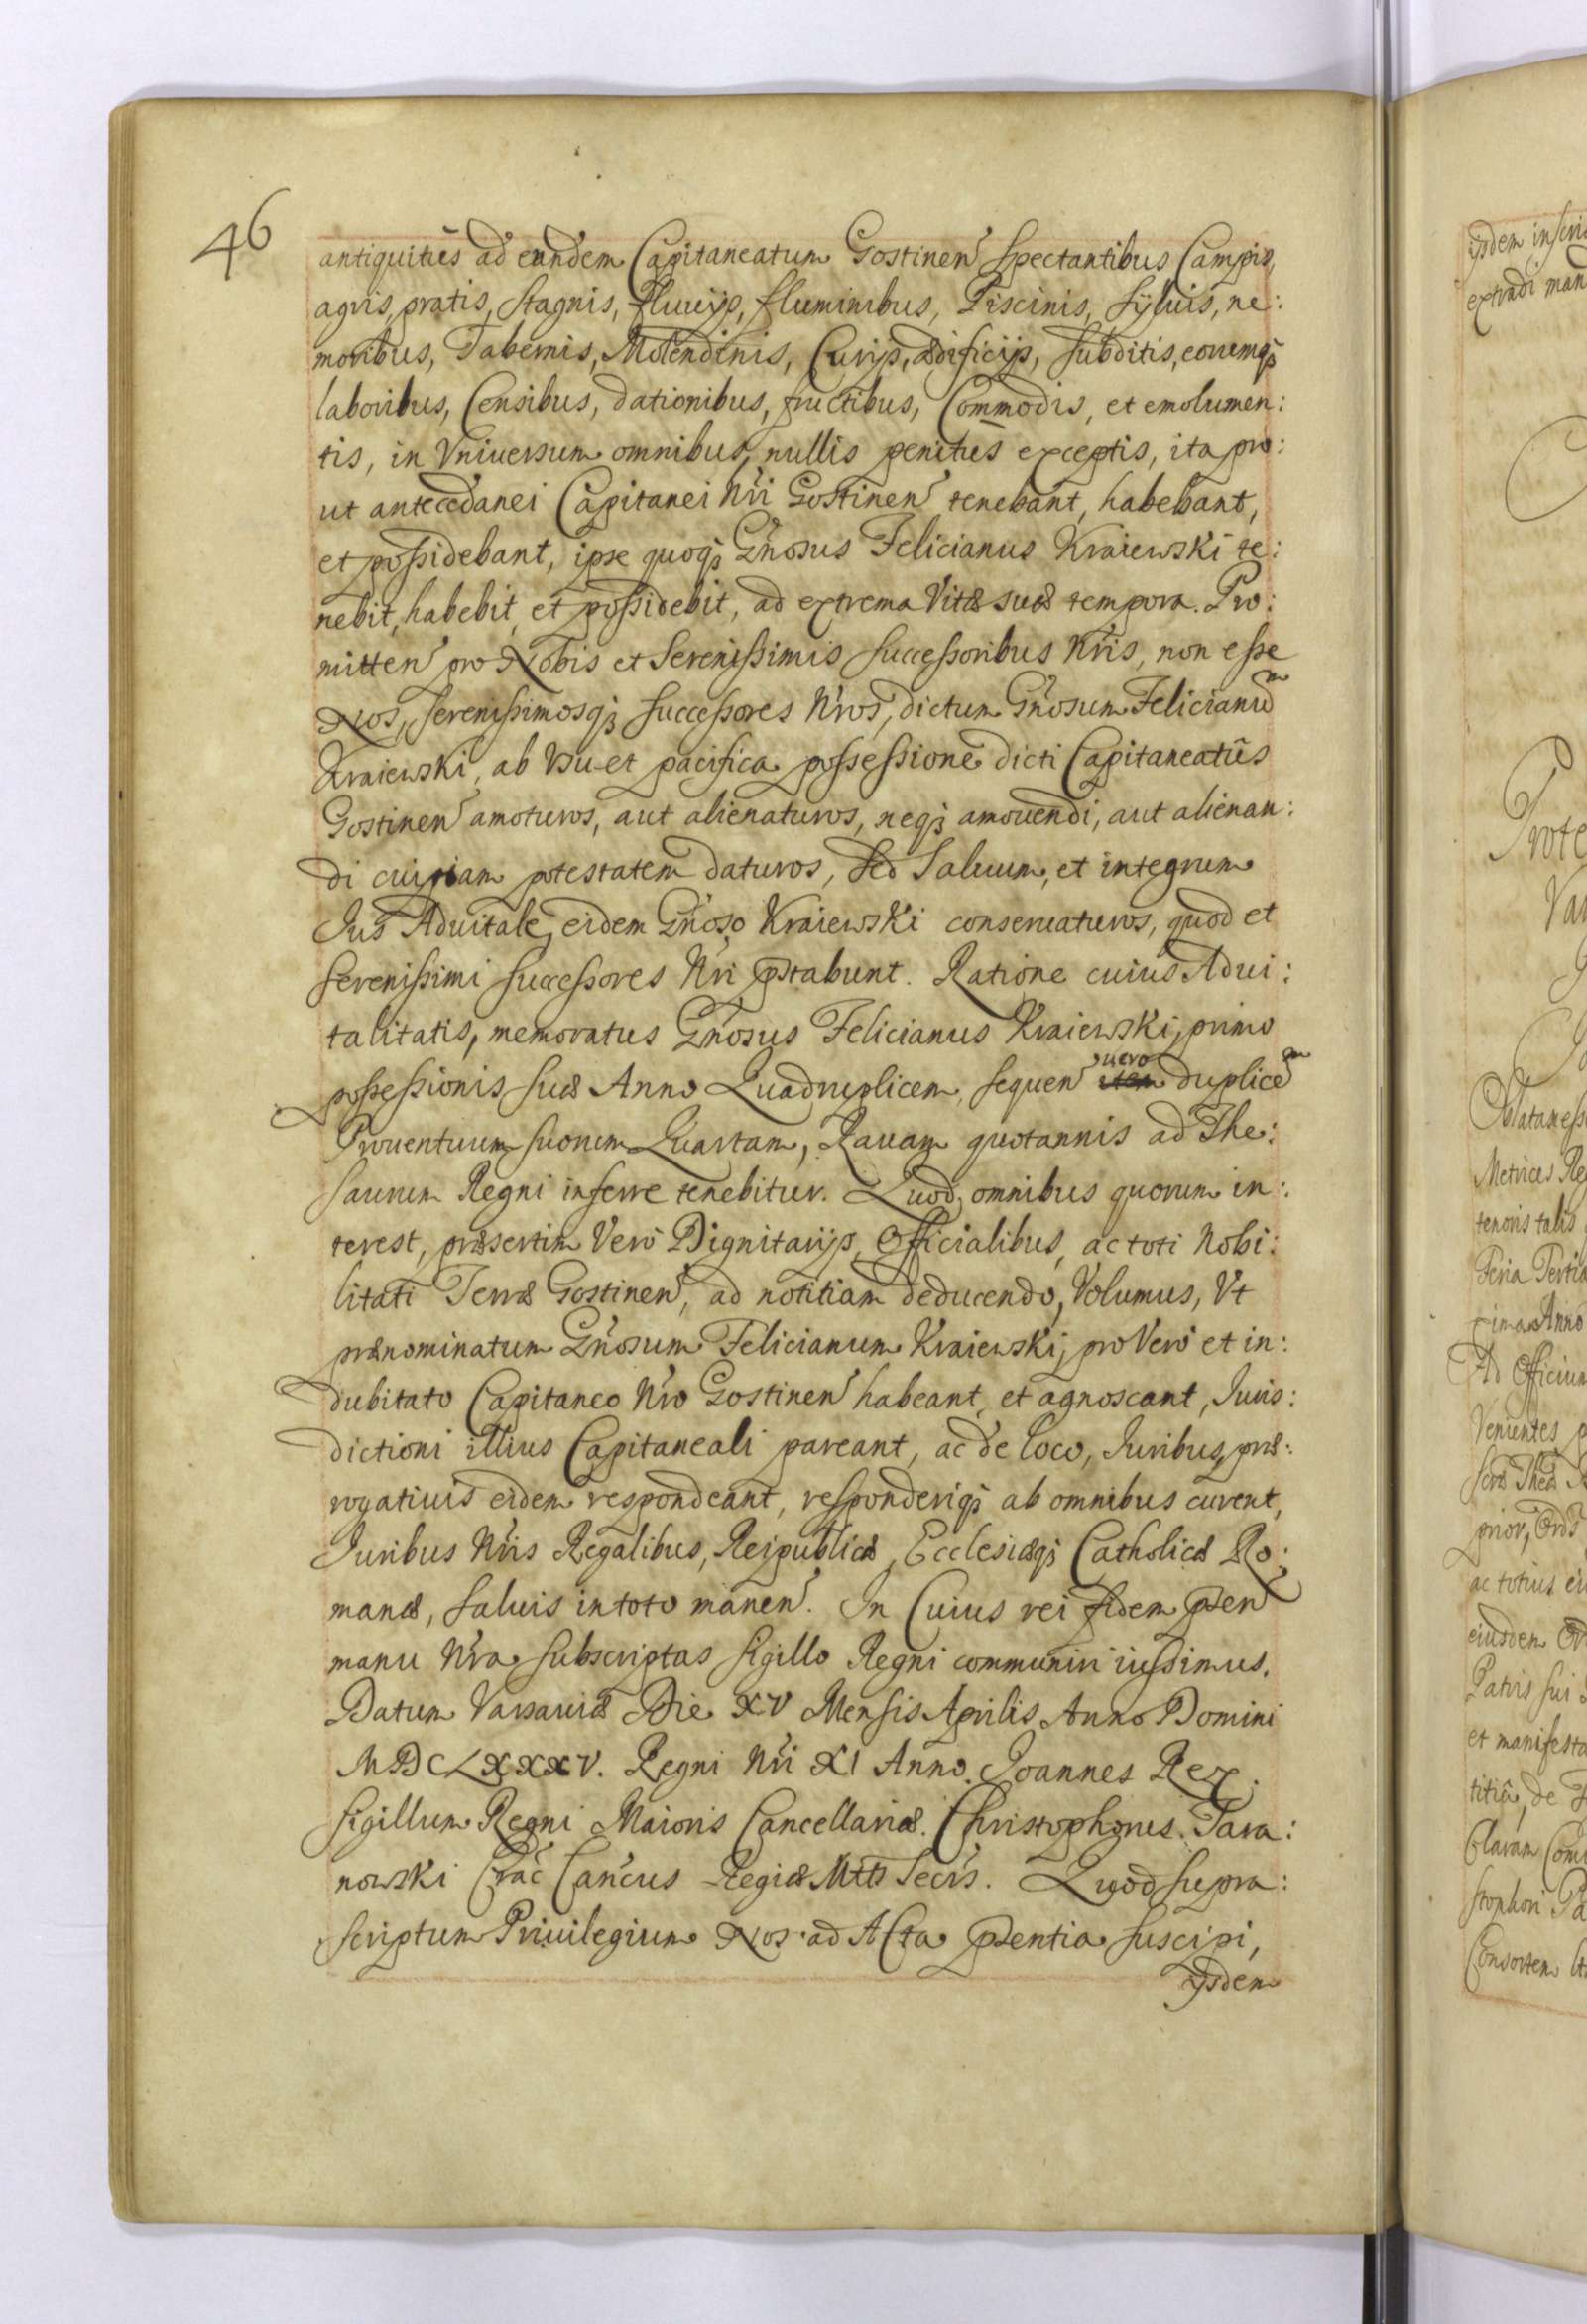 46
antiquitùs ad eundem Capitaneatum Gostinen̄ spectantibus Campis,
agris, pratis, stagnis, fluuijs, fluminibus, Piscinis, syluis, ne:
moribus, Tabernis, Molendinis, Curijs, ædificijs, subditis, eorumq́₃
laboribus, Censibus, dationibus, fructibus, Commodis, et emolumen:
tis, in Vniuersum omnibus, nullis penitùs exceptis, ita pro:
ut antecedanei Capitanei Nr̃i Gostinen̄ tenebant, habebant,
et possidebant, ipse quoq₃ Gñosus Felicianus Kraiewski te:
nebit, habebit, et possidebit, ad extrema Vitæ suæ tempora. Pro:
mitten̄ pro Nobis et Serenissimis successoribus Nr̃is, non esse
Nos, serenissimosq₃ successores Nr̃os, dictum Gñosum Felicianuᵐ
Kraiewski, ab Vsu et pacifica possessione dicti Capitaneatûs
Gostinen̄ amoturos, aut alienaturos, neq₃ amouendi, aut alienan:
di cuipiam potestatem daturos, sed Saluum, et integrum
Jus Aduitale, eidem Gñoso Kraiewski conseruaturos, quod et
serenissimi successores Nr̃i pr̃stabunt. Ratione cuius Adui:
talitatis, memoratus Gñosus Felicianus Kraiewski, primo
possessionis suæ Anno Quadruplicem, sequen̄ uero dupliceᵐ
Prouentuum suorum Quartam, Rauam quotannis ad The:
saurum Regni inferre tenebitur. Quod omnibus quorum in:
terest, præsertim Verò Dignitarijs, Officialibus, ac toti Nobi:
litati Terræ Gostinen̄, ad notitiam deducendo, Volumus, Vt
prænominatum Gñosum Felicianum Kraiewski, pro Vero et in:
dubitato Capitaneo Nr̃o Gostinen̄ habeant, et agnoscant, Juris:
dictioni illius Capitaneali pareant, ac de loco, Juribus, præ:
rogatiuis eidem respondeant, responderiq₃ ab omnibus curent,
Juribus Nr̃is Regalibus, Reipublicæ, Ecclesiæq₃ Catholicæ Ro:
manæ, saluis in toto manen̄. In Cuius rei fidem pr̃sen̄
manu Nr̃a subscriptas sigillo Regni communiri iussimus.
Datum Varsauiæ Die XV Mensis Aprilis Anno Domini
MDCLXXXV. Regni Nr̃i XI Anno. Joannes Rex.
Sigillum Regni Maioris Cancellariæ. Christophorus Tara:
nowski Crac̃ Can̄cus Regiæ Mtt̃s Secr̃s. Quod supra:
scriptum Priuilegium Nos ad Acta pr̃sentia suscipi,
ijsdem